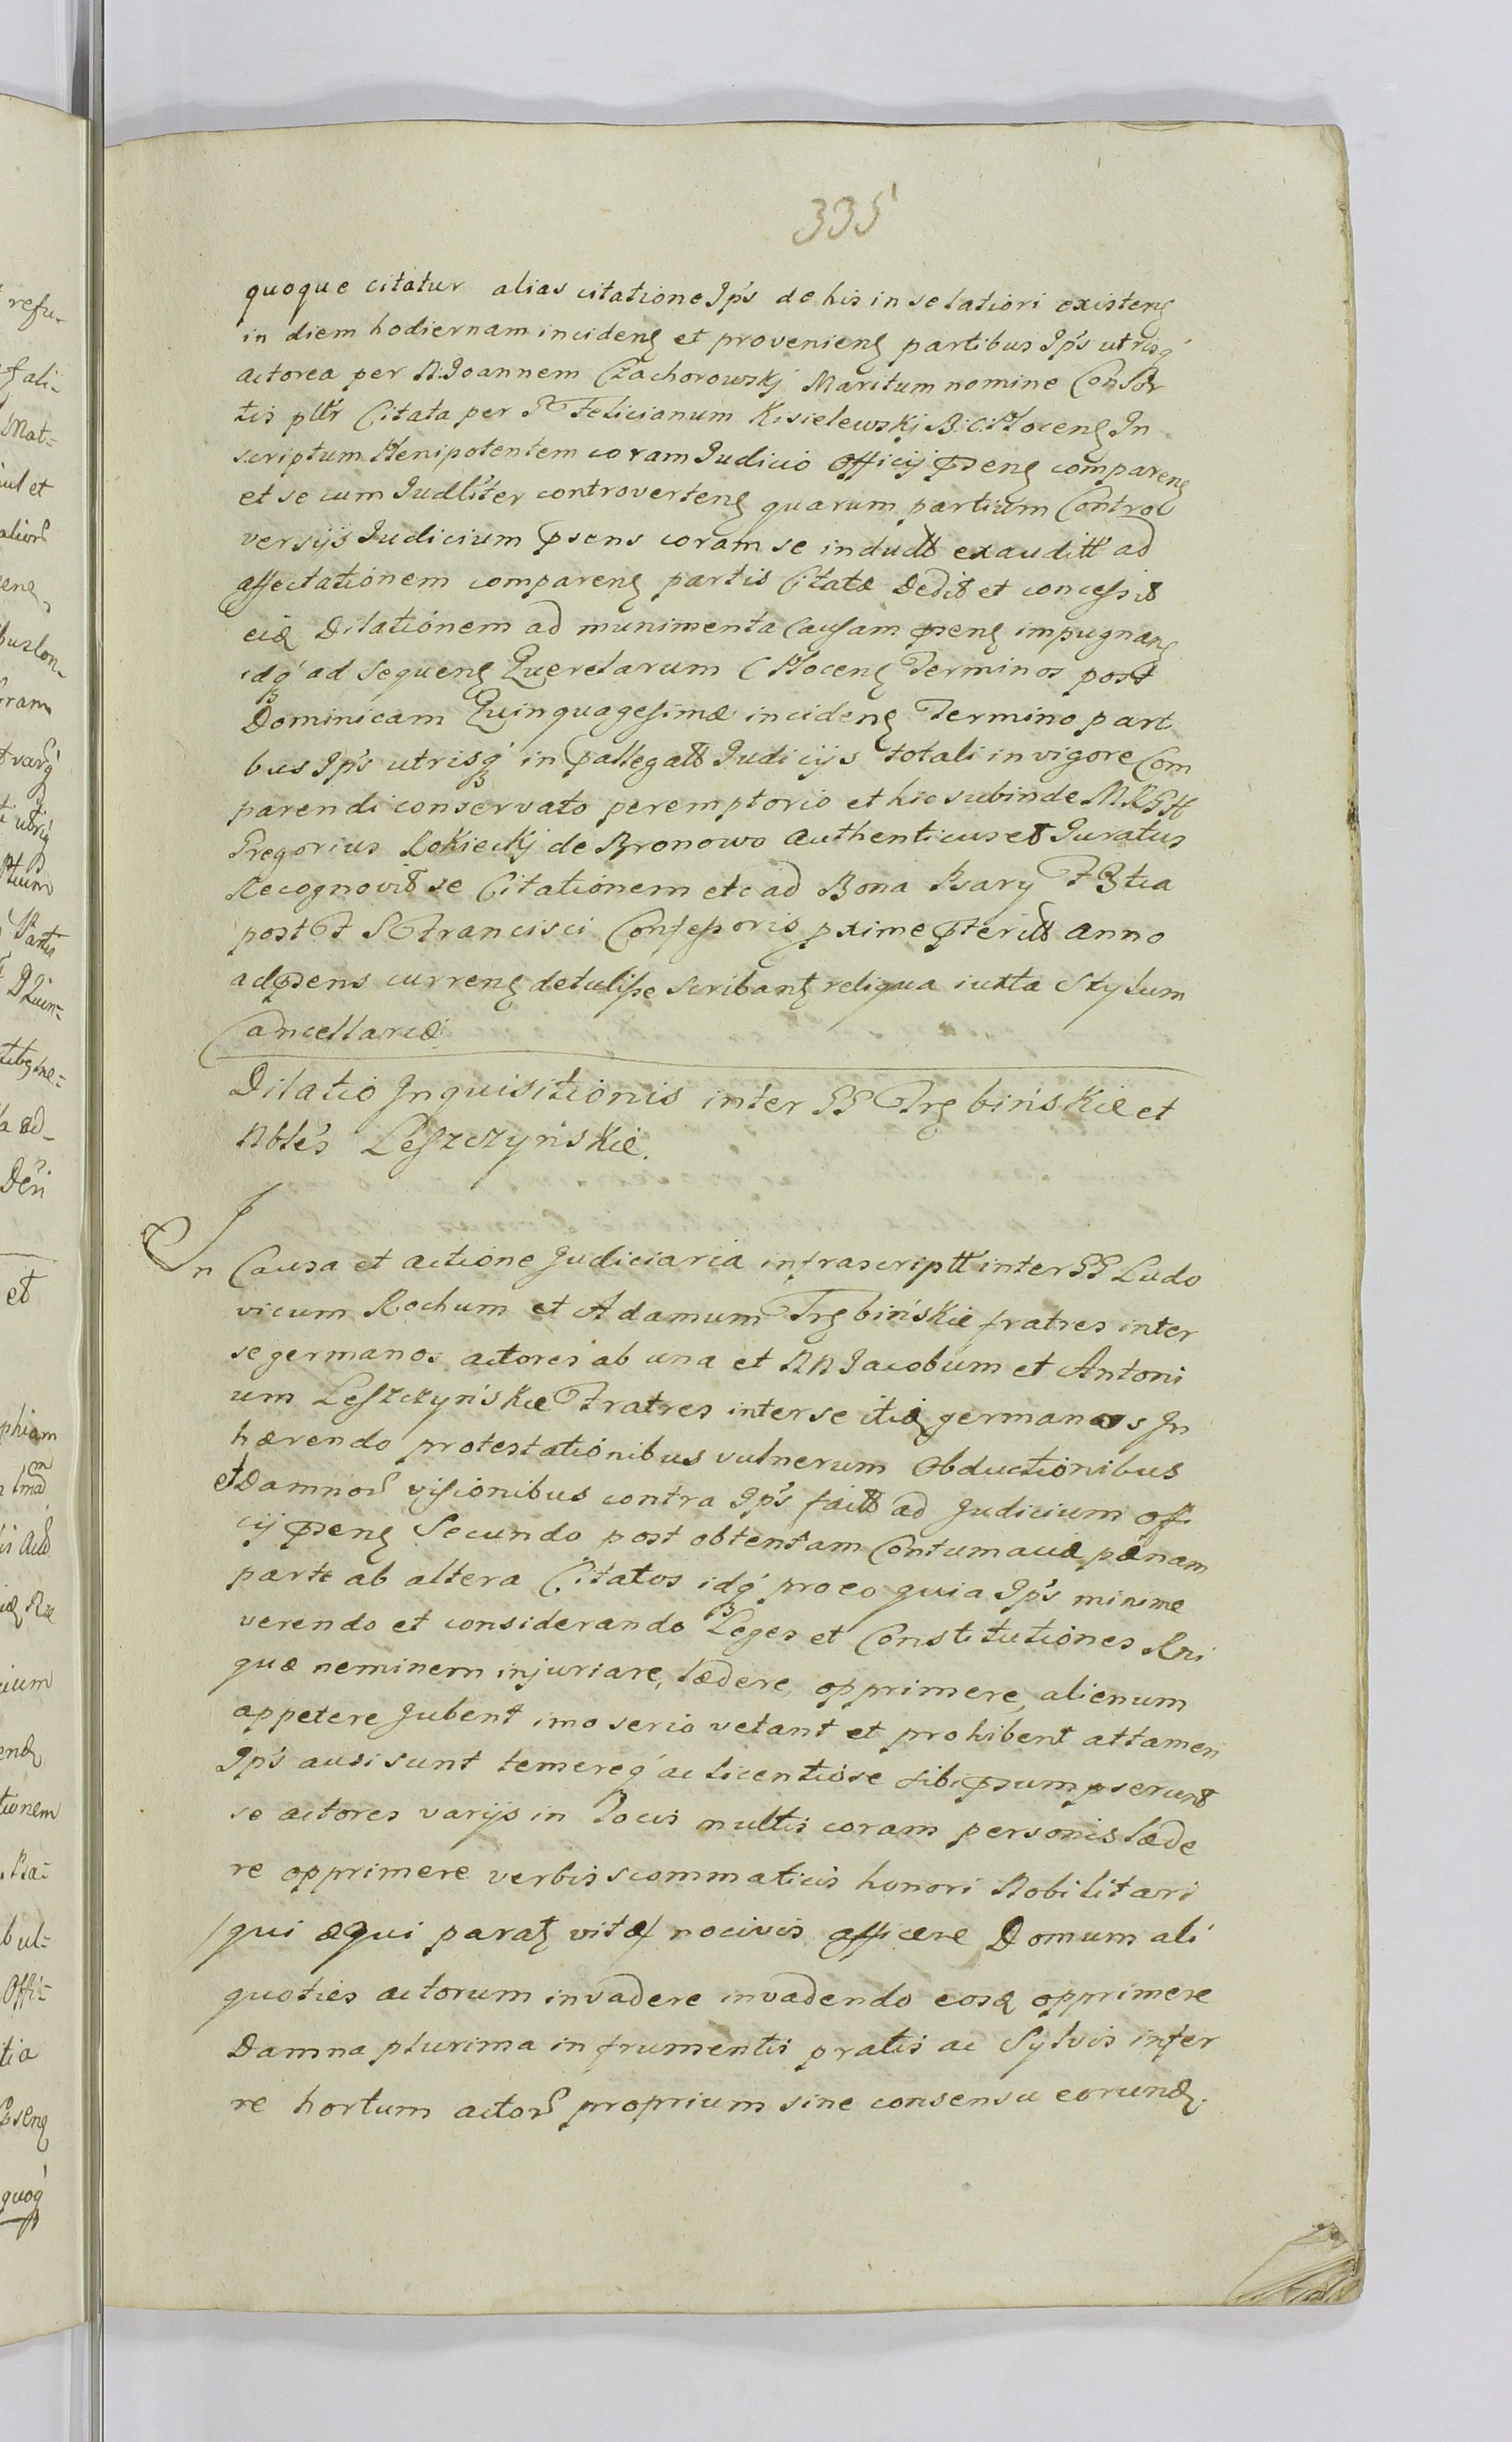 335
quoque citatur alias citatione Ip̅s de his in se latiori existenꝫ
in diem hodiernam incidenꝫ et provenienꝫ partibus Ip̅s utrisq́
actorea per N. Joannem Czachorowskj Maritum nomine Consor
tis pltr̅ Citata per G Felicianum Kisielewskj B: C: Plocenꝫ In
scriptum Plenipotentem coram Judicio Officij p̅senꝫ comparenꝫ
et se cum Judlíter controvertenꝫ quarum partium Contro
versijs Judicium p̅sens coram se induct̅ exaudit̅ ad
affectationem comparenꝫ partis Citatæ Dedit et concessit
eiꝫ Dilationem ad munimenta Causam p̅senꝫ impugnanꝫ
idq́ ad sequenꝫ Querelarum C Plocenꝫ Terminos post
Dominicam Quinquagesimæ incidenꝫ Termino parti
bus Ip̅s utrisq́ in p̅allegat̅ Judicijs totali in vigore Com
parendi conservato peremptorio et hic subinde MRGH
Gregorius Lokieckj de Bronowo Authenticus et Juratus
Recognovit se Citationem etc ad Bona Psary F 3tia
post F S Francisci Confessoris pxime p̅terit̅ anno
ad p̅sens currenꝫ detulisse scribantꝫ reliqua iuxta Stylum
Cancellariæ.
Dilatio Inquisitionis inter GG Trębińskie et
Nblés Leszczyńskie.
In Causa et actione Judiciaria infrascript̅ inter GG Ludo
vicum Rochum et Adamum Trębińskie fratres inter
se germanos actores ab una et NN Jacobum et Antoni
um Leszczyńskie Fratres inter se itiꝫ germanos In
hærendo protestationibus vulnerum Obductionibus
et Damnoꝝ visionibus contra Ip̅s fact̅ ad Judicium offi
cij p̅senꝫ Secundo post obtentam Contumaciæ pænam
parte ab altera Citatos idq́ pro eo quia Ip̅s minime
verendo et considerando Leges et Constitutiones Rni
quæ neminem injuriare, lædere, opprimere, alienum
appetere Jubent imo serio vetant et prohibent attamen
Ip̅s ausi sunt temereq́ ac licentiose sibi p̅sumpserunt
se actores varijs in locis multis coram personis læde
re opprimere verbis scommaticis honori Nobilitari
/qui æqui paratꝫ vitæ/ nocivis afficere Domum ali
quoties actorum invadere invadendo eosꝫ opprimere
Damna plurima in frumentis pratis ac Sylvis infer
re hortum actoꝝ proprium sine consensu eorundꝫ.